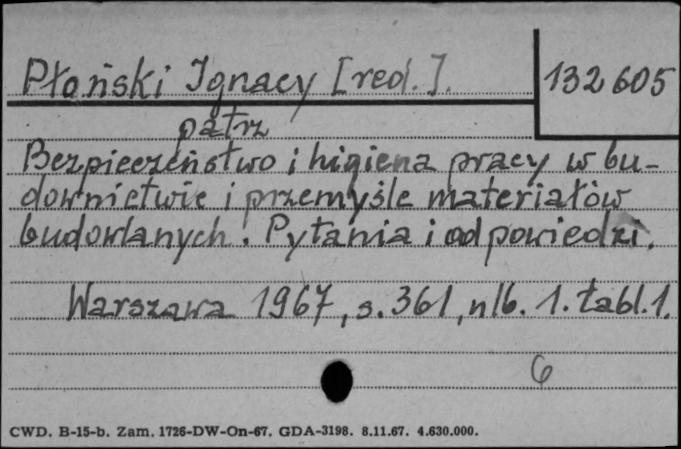 Płoński Ignacy [red.].
132605
patrz
Bezpieczeństwo i higiena pracy w bu-
downictwie i przemyśle materiałów
budowlanych. Pytania i odpowiedzi.
Warszawa 1967, s. 361, nlb. 1. tabl. 1.
6
CWD. B-15-b. Zam. 1726-DW-On-67. GDA-3198. 8.11.67. 4.630.000.